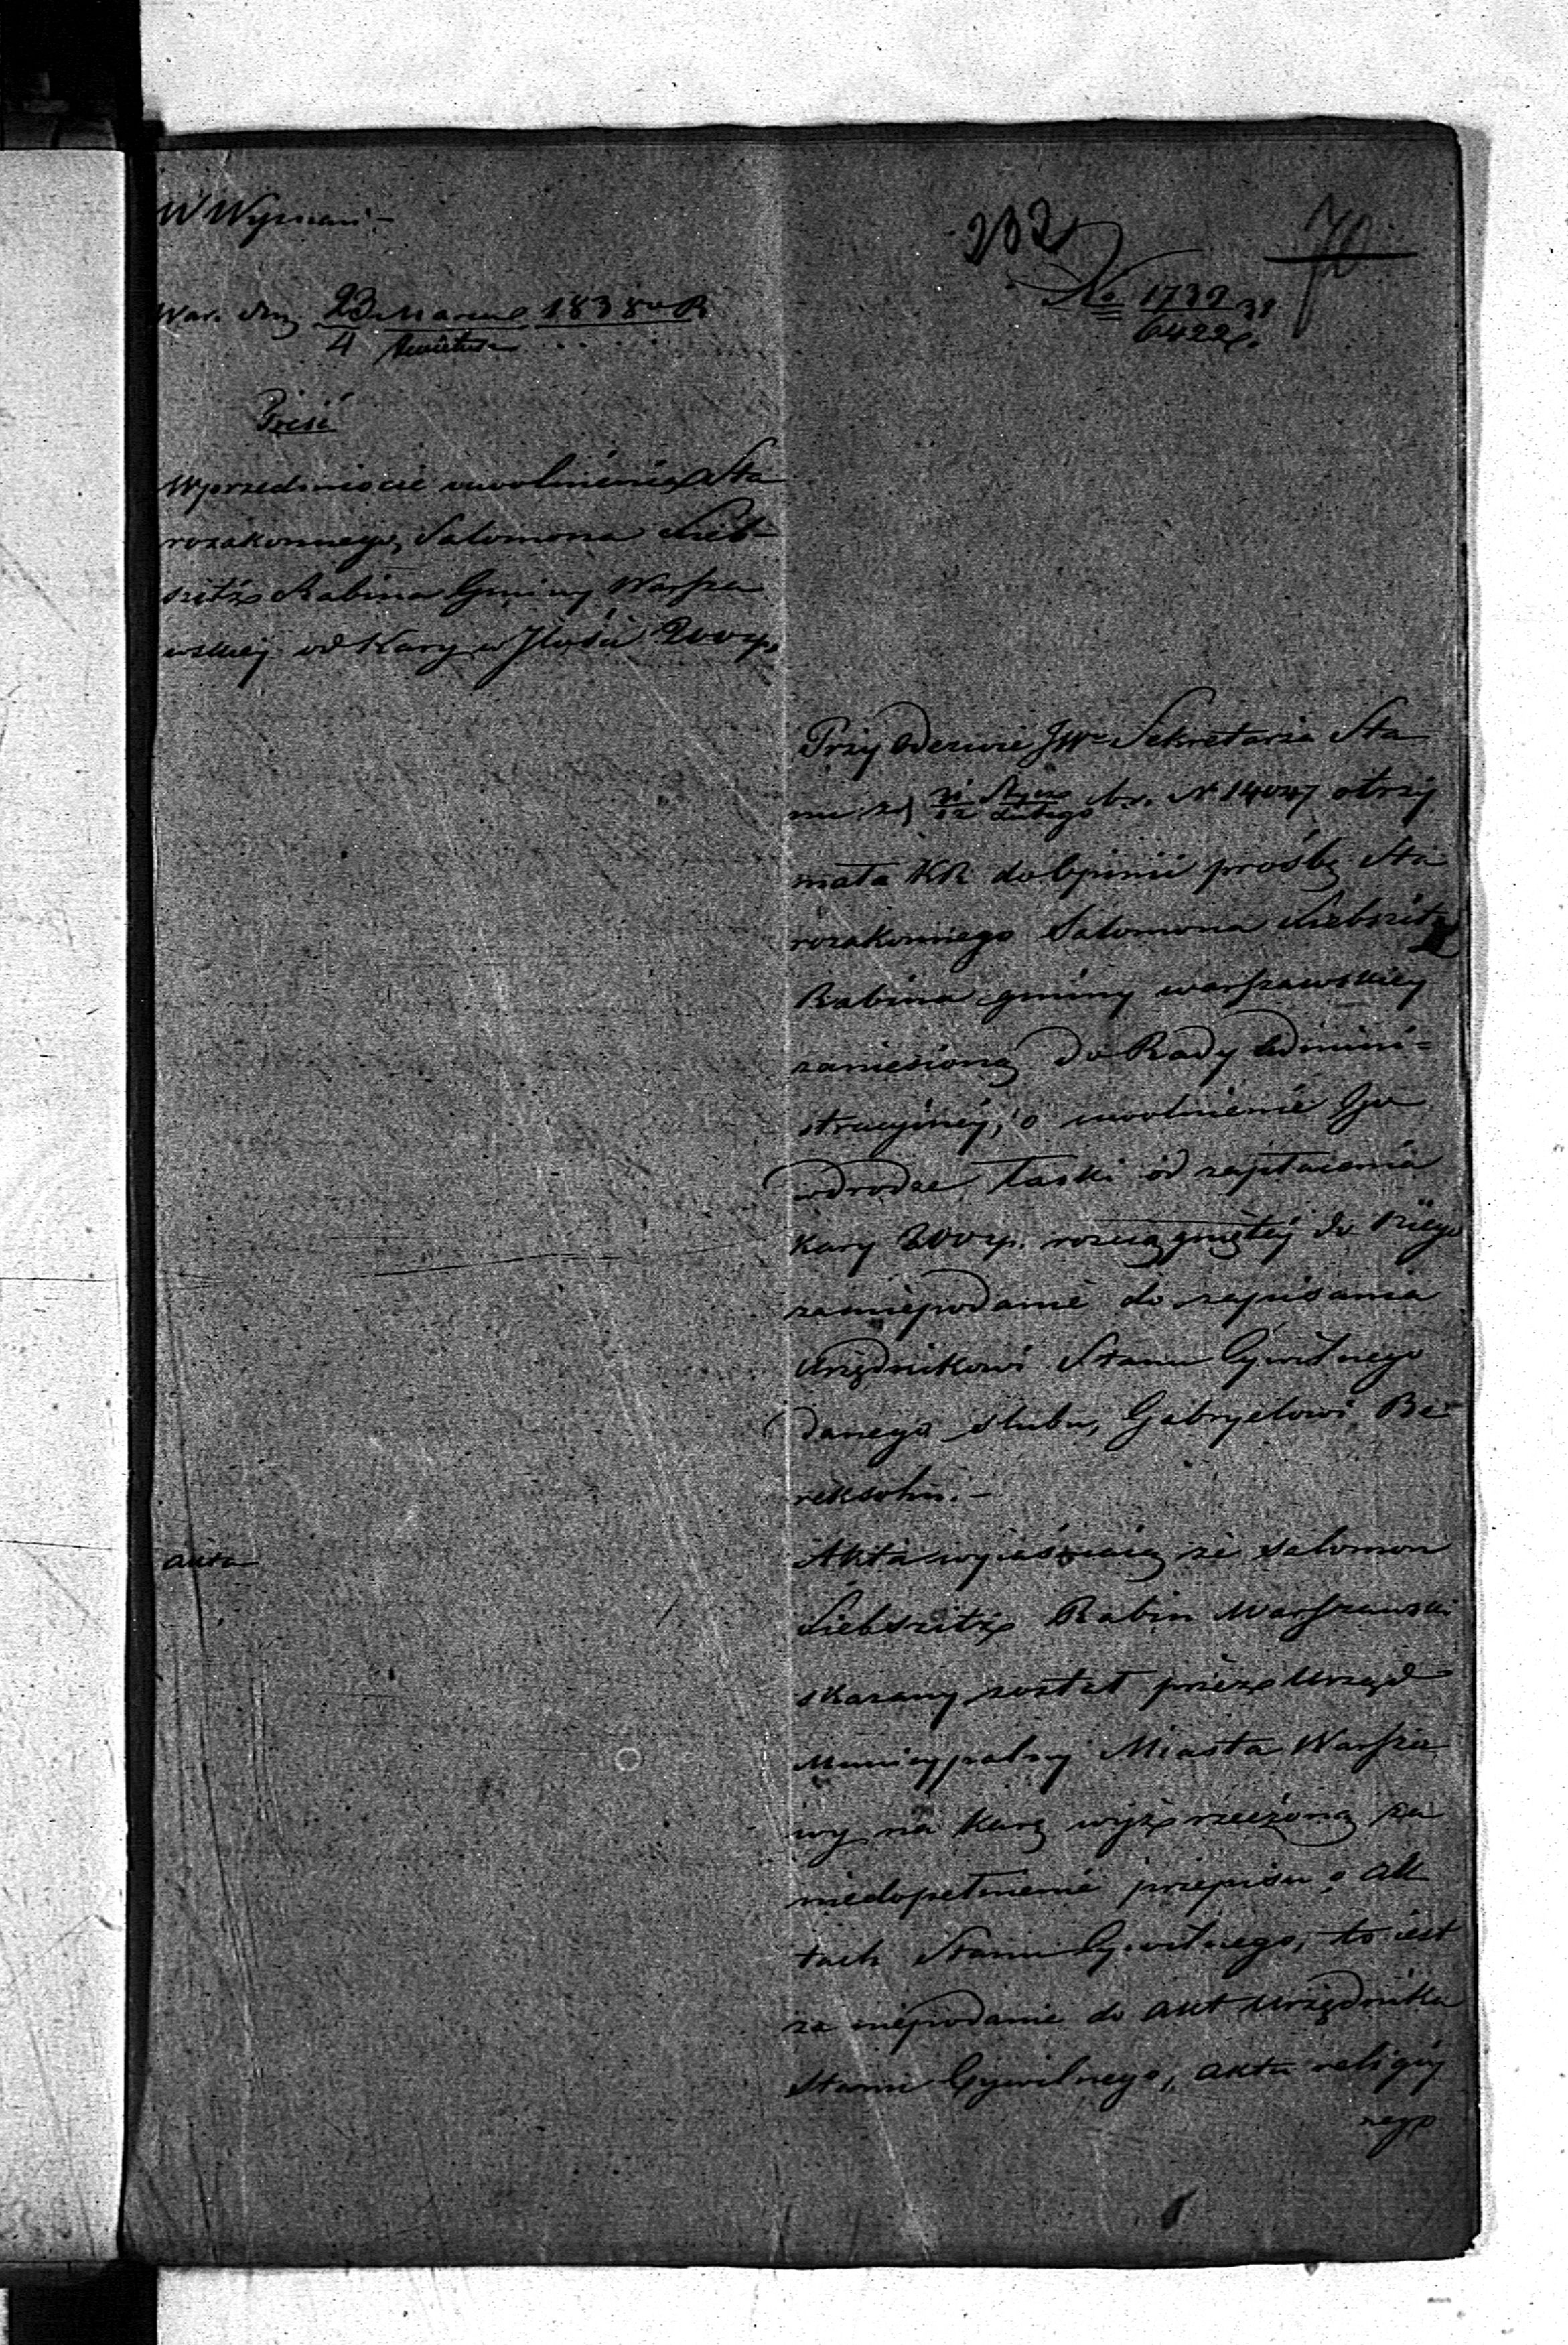 W Wyznani.-
232
70
No 1739 38
6422.
War. dnia 23 Marca 1838o R
4 Kwietnia
Treść
W przedmiocie uwolnienia Sta
rozakonnego, Salomona Lieb-
szitz Rabina Gminy Warsza
wskiej od Kary w Ilości 200 zł.
Przy Odezwie JWo Sekretarza Sta
nu z d 31 Stycz b.r. N 14047 otrzy
12 Lutego
mała KR do Opinii prośbę Sta
rozakonnego Salomona Liebszitz
Rabina gminy warszawskiey
zaniesioną do Rady Admini=
stracyjnéj, o uwolnienie Go
w drodze łaski od zapłacenia
Kary 200 zł. rozciągniętéj do Niego
za niepodanie do zapisania
Urzędnikowi Stanu Cywilnego
danego slubu, Gabryelowi Be-
reksohn.-
Akta
Akta wyiaśniaią że Salomon
Liebszitz Rabin Warszawski
skazany został przez Urząd
Municypalny Miasta Warsza
wy na karę wyż rzeczoną za
niedopełnienie przepisu o Ak
tach Stanu Cywilnego, to iest
za niepodanie do akt Urzędnika
Stanu Cywilnego, aktu religiy
nego